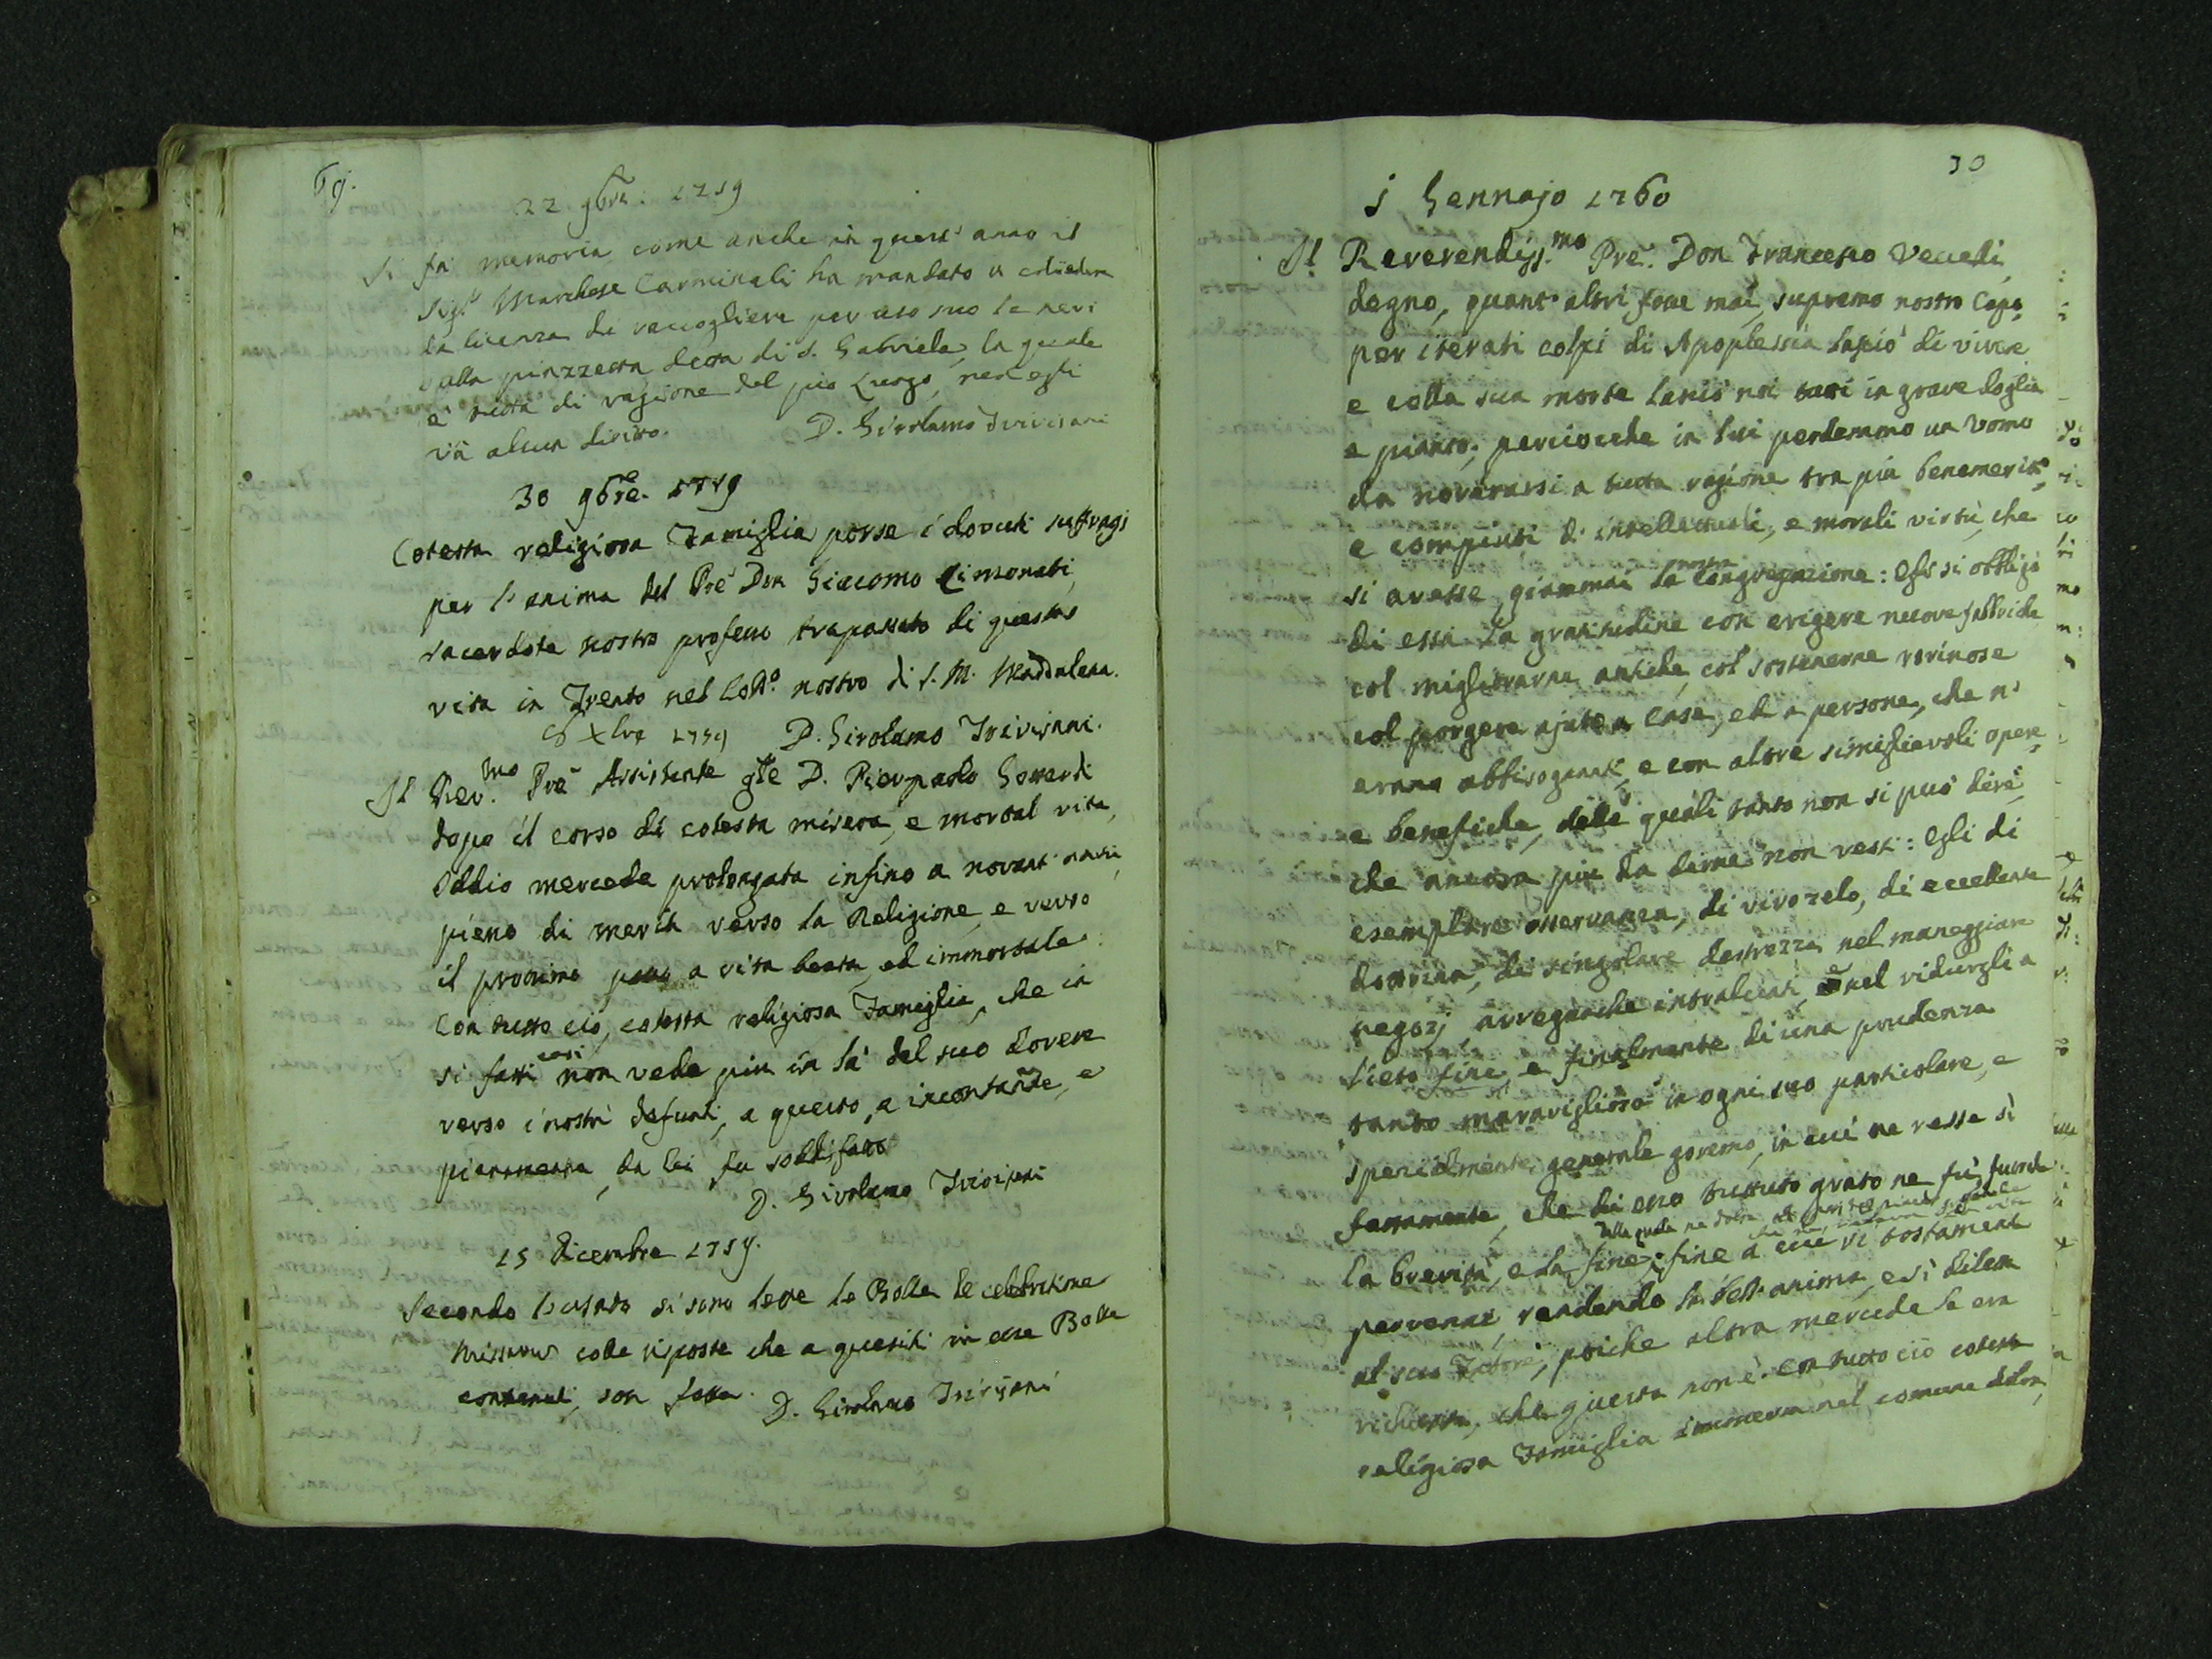 69.
22 9bre. 1759
Si fà memoria come anche in quest' anno il
Sigr. Marchese Carminali ha mandato a chiedere
la licenza di raccogliere per uso suo le nevi
dalla piazzetta detta di S. Gabriele, la quale
è tutta di ragione del pio Luogo, nè egli
v'à alcun diritto. D. Girolamo Trivisani
30 9bre. 1759
Cotesta religiosa Famiglia porse i dovuti suffragj
per l'anima del Pre Don Giacomo Cimonati,
sacerdote nostro professo trapassato di questa
vita in Trento nel Collo. nostro di S. M. Maddalena.
Xbre 1759 D. Girolamo Trivisani.
Il Rev.mo Pre Assistente gle D. Pierpaolo Gottardi
dopo il corso di cotesta misera, e mortal vita,
Iddio mercede prolongata infino a novant' anni,
pieno di meriti verso la Religione, e verso
il prossimo passò a vita beata, ed immortale:
Con tutto ciò, cotesta religiosa Famiglia, che in
si fatti casi non vede più in là del suo dovere
verso i nostri defunti, a questo, e incontañte, e
pienamente, da lei fu soddisfatto
D. Girolamo Trivisani
15 Dicembre 1759.
Secondo l'usato si sono lette le Bolle de celebratione
Missarum colle risposte che a quesiti in esse Bolle
contenuti, son fatte. D. Girolamo Trivisani
70
5 Gennajo 1760
Il Reverendiss.mo Pre. Don Francesco Vecelli,
degno, quant' altri fosse mai, supremo nostro Capo,
per iterati colpi di Apoplessia lasciò di vivere
e colla sua morte lasciò noi tutti in grave doglia
e pianto; perciocche in lui perdemmo un Vomo
da noverarsi a tutta ragione tra più benemeriti,
e compiuti di intellettuali, e morali virtù, che
si avesse giammai la nostra Congregazione: Egli si obbligò
di essa la gratitudine con erigere nuove fabbriche
col migliorarne antiche, col sostenerne rovinose
col porgere ajuto a Case, ed a persone, che n'
erano abbisognanti, e con altre simiglievoli opere,
e benefiche, delle quali tanto non si può dire,
che ancora più da dirne non resti: Egli di
esemplare osservanza, di vivo zelo, di eccellente
dottrina, di singolare destrezza nel maneggiare
negozj arregnache intralciati, e nel ridurgli a
lieto fine, e finalmente di una prudenza
tanto maravigliosa in ogni suo particolare, e
specialmente generale governo, in cui ne resse sì
fattamente, che di esso tuttuto grato ne fù, fuorche
la brevità, e la fine; fine a cui vi tostamente
pervenne, rendendo la bell' anima, e sì diletta
al suo Fattore, poiche altra mercede le era
richiesta, che questa non è. Con tutto ciò cotesta
religiosa Famiglia immersa nel comune dolore,